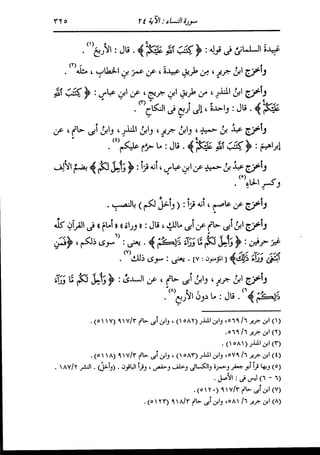 سورة النساء : الآية ٢٤ ٣٢٥
عبيدة السلمانىِّ فى قوله : ﴿ كِتَٰبَ اللَّهِ عَلَيْكُمْ ﴾ . قال : الأربع(١) .
وأخرج ابنُ جريرٍ ، من طريقِ عبيدةَ ، عن عمرَ بنِ الخطابِ ، مثلَه(٢) .
وأخرج ابنُ المنذرِ ، من طريقِ ابنِ جريجٍ ، عن ابنِ عباسٍ : ﴿ كِتَٰبَ اللَّهِ
عَلَيْكُمْ ﴾ . قال : واحدةً ، إلى أربعٍ فى النكاحِ(٣) .
وأخرج عبدُ بنُ حميدٍ ، وابنُ جريرٍ ، وابنُ المنذرِ ، وابنُ أبى حاتمٍ ، عن
إبراهيمَ : ﴿ كِتَٰبَ اللَّهِ عَلَيْكُمْ ﴾ . قال : ما حرَّم عليكم(٤) .
وأخرج عبدُ بنُ حميدٍ عن ابنِ عباسٍ ، أنه قرَأ : ﴿ وَأُحِلَّ لَكُم ﴾ بضمِّ الألفِ
وكسرِ الحاءِ(٥) .
وأخرج عن عاصمٍ ، أنه قرَأ : ( وأَحَلَّ لكم ) بالنصبِ .
وأخرج ابنُ أبى حاتمٍ عن أبى مالكٍ ، قال : « وراء» (٦« أمام » فى القرآنِ كلِّه
غيرَ حرفين : ﴿ وَأُحِلَّ لَكُم مَّا وَرَآءَ ذَٰلِكُمْ ﴾ . يعنى :٦) سوى ذلكم ، ﴿ فَمَنِ
ابْتَغَىٰ وَرَآءَ ذَٰلِكَ ﴾ [ المؤمنون : ٧ ] . يعنى : سوى ذلك(٧) .
وأخرج ابنُ جريرٍ ، وابنُ أبى حاتمٍ ، عن السدىِّ : ﴿ وَأُحِلَّ لَكُم مَّا وَرَآءَ
ذَٰلِكُمْ ﴾ . قال : ما دونَ الأربعِ(٨) .
(١) ابن جرير ٦/ ٥٦٩، وابن المنذر (١٥٨٢) ، وابن أبى حاتم ٩١٧/٣ (٥١١٧) .
(٢) ابن جرير ٦/ ٥٦٩.
(٣) ابن المنذر (١٥٨١) .
(٤) ابن جرير ٦/ ٥٧٩، وابن المنذر (١٥٨٣) ، وابن أبى حاتم ٩١٧/٣ (٥١١٨) .
(٥) وبها قرأ أبو جعفر وحمزة والكسائى وخلف وحفص ، وقرأ الباقون . (وأَحَلَّ) . النشر ١٨٧/٢ .
(٦ - ٦) ليس فى : الأصل .
(٧) ابن أبى حاتم ٩١٧/٣ (٥١٢٠) .
(٨) ابن جرير ٦/ ٥٨١، وابن أبى حاتم ٩١٨/٣ (٥١٢٣) .